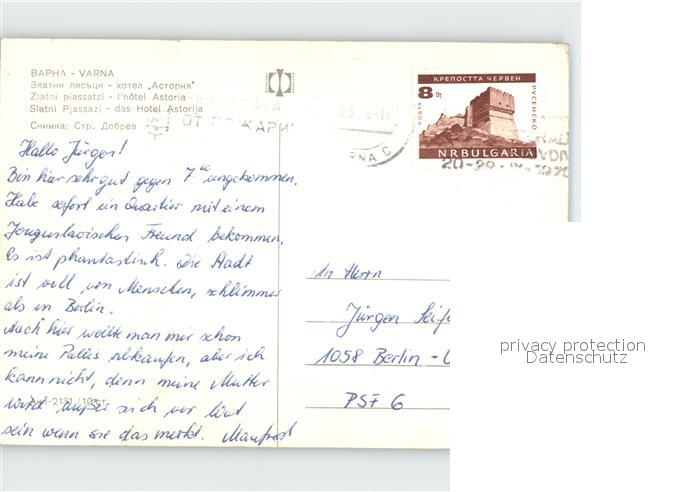 ВАРНА - VARNA
Златни пясъци - хотел „Астория"
Zlatni piassatzi - l'hôtel Astoria
Slatni Pjassazi - das Hotel Astorija
Снимка: Стр. Добрев
ОТ ПОЖАРИ
КРЕПОСТТА ЧЕРВЕН
8 ст.
РУСЕНСКО
ПОЩА
NR BULGARIA
Hallo Jürgen!
Bin hier sehr gut gegen 7 angekommen.
Habe sofort ein Quartier mit einem
Jouguslawischen Freund bekommen.
Es ist phantastisch. Die Stadt
ist voll von Menschen, schlimmer
als in Berlin.
Auch hier wollte man mir schon
meine Pullis abkaufen, aber ich
kann nicht, denn meine Mutter
wird außer sich vor Wut
sein wenn sie das merkt. Manfred
An Herrn
Jürgen Seif
1058 Berlin -
PSF 6
privacy protection
Datenschutz